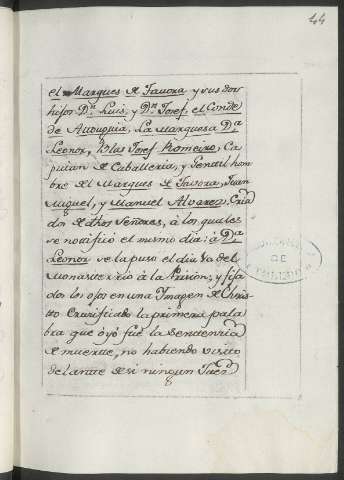 44
el Marques de Tavora y sus dos
hijos Dn. Luis, y Dn. Josef, el Conde
de Atouguia, La Marquesa Da.
Leonor, Blas Josef Romeiro, Ca
pitan de Caballeria, y Gentil hom
bre del Marques de Tavora, Juan
Miguel, y Manuel Alvarez, Cria
dos de dhos Señores, à los quales
se notificó el mismo dia: à Da.
Leonor se la puso el dia del
Monasterio à la Prision; y fija
dos los ojos en una Imagen de Chris
to Crucificado la primera pala
bra que oyó fué la Sentencia
de muerte, no habiendo visto
delante de si ningun Juez
DE